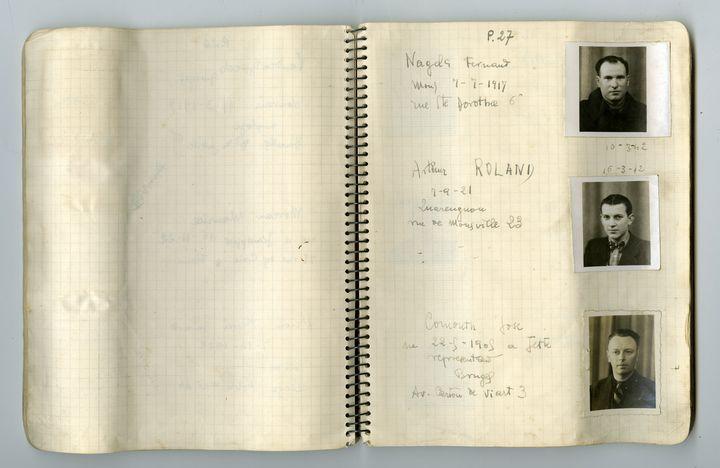 P.27
Nagels Fernand
Mons 7-7-1917
rue Ste Dorothée 6
10-3-42
16-3-42
Arthur ROLAND
7-9-21
Quaregnon
rue de Monsville 23
José
né 22-5-1905 a Jette
représentant
Brux
Av. Carton de Viart 3